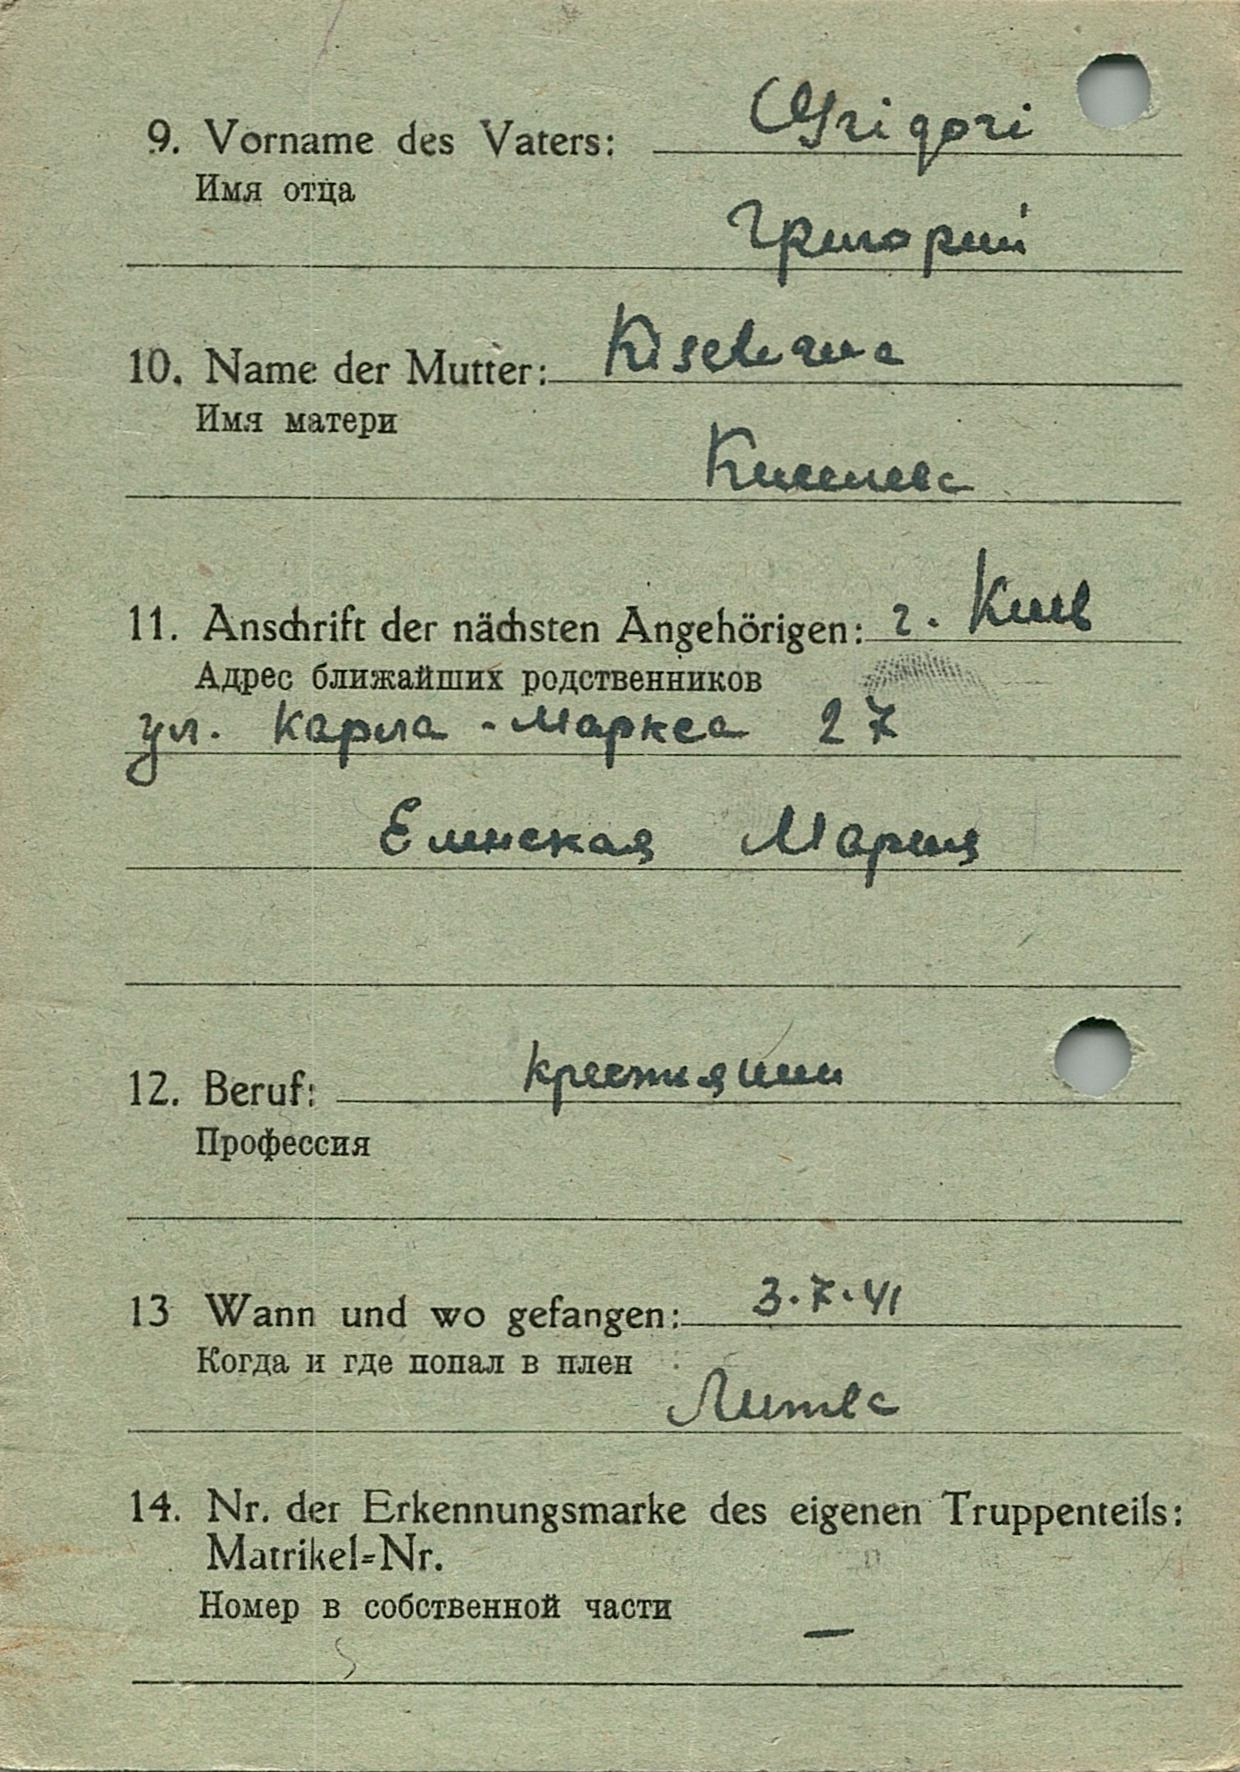 9. Vorname des Vaters: Grigori
Имя отца
Григорий
10. Name der Mutter:
Имя матери
Киселева
11. Anschrift der nächsten Angehörigen: г. Киев
Адрес ближайших родственников
ул. Карла-Маркса 27
Елинская Мария
12. Beruf:
Профессия
13 Wann und wo gefangen: 3.7.41
Когда и где попал в плен
Литва
14. Nr. der Erkennungsmarke des eigenen Truppenteils:
Matrikel=Nr.
Номер в собственной части
—